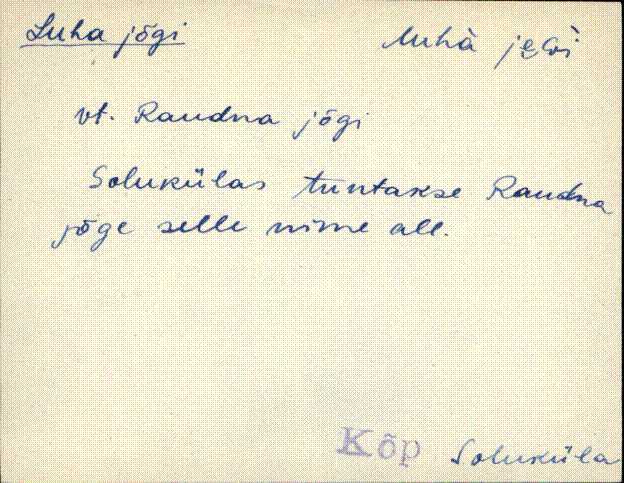 Luha jõgi
vt. Raudna jõgi
Solukülas tuntakse Raudna
jõge selle nime all.
Kõp Soluküla